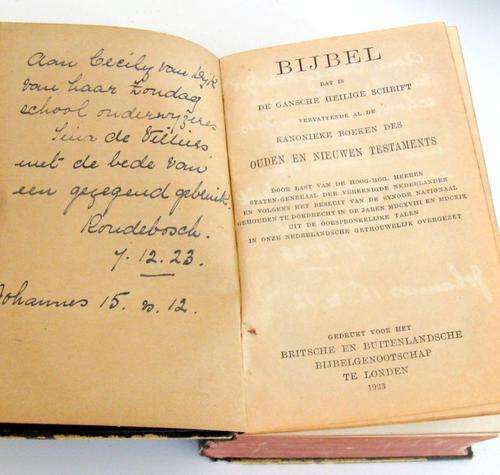 Aan Cecily van Wyk
van haar Zondag
school onderwijzeres
de Villiers
met de bede van
een gezegend gebruik.
Rondebosch.
7. 12. 23.
Johannes 15. v. 12.
BIJBEL
DAT IS
DE GANSCHE HEILIGE SCHRIFT
VERVATTENDE AL DE
KANONIEKE BOEKEN DES
OUDEN EN NIEUWEN TESTAMENTS
DOOR LAST VAN DE HOOG-MOG. HEEREN
STATEN-GENERAAL DER VEREENIGDE NEDERLANDEN
EN VOLGENS HET BESLUIT VAN DE SYNODE NATIONAAL
GEHOUDEN TE DORDRECHT IN DE JAREN MDCXVIII EN MDCXIX
UIT DE OORSPRONKELIJKE TALEN
IN ONZE NEDERLANDSCHE GETROUWELIJK OVERGEZET
GEDRUKT VOOR HET
BRITSCHE EN BUITENLANDSCHE
BIJBELGENOOTSCHAP
TE LONDEN
1923